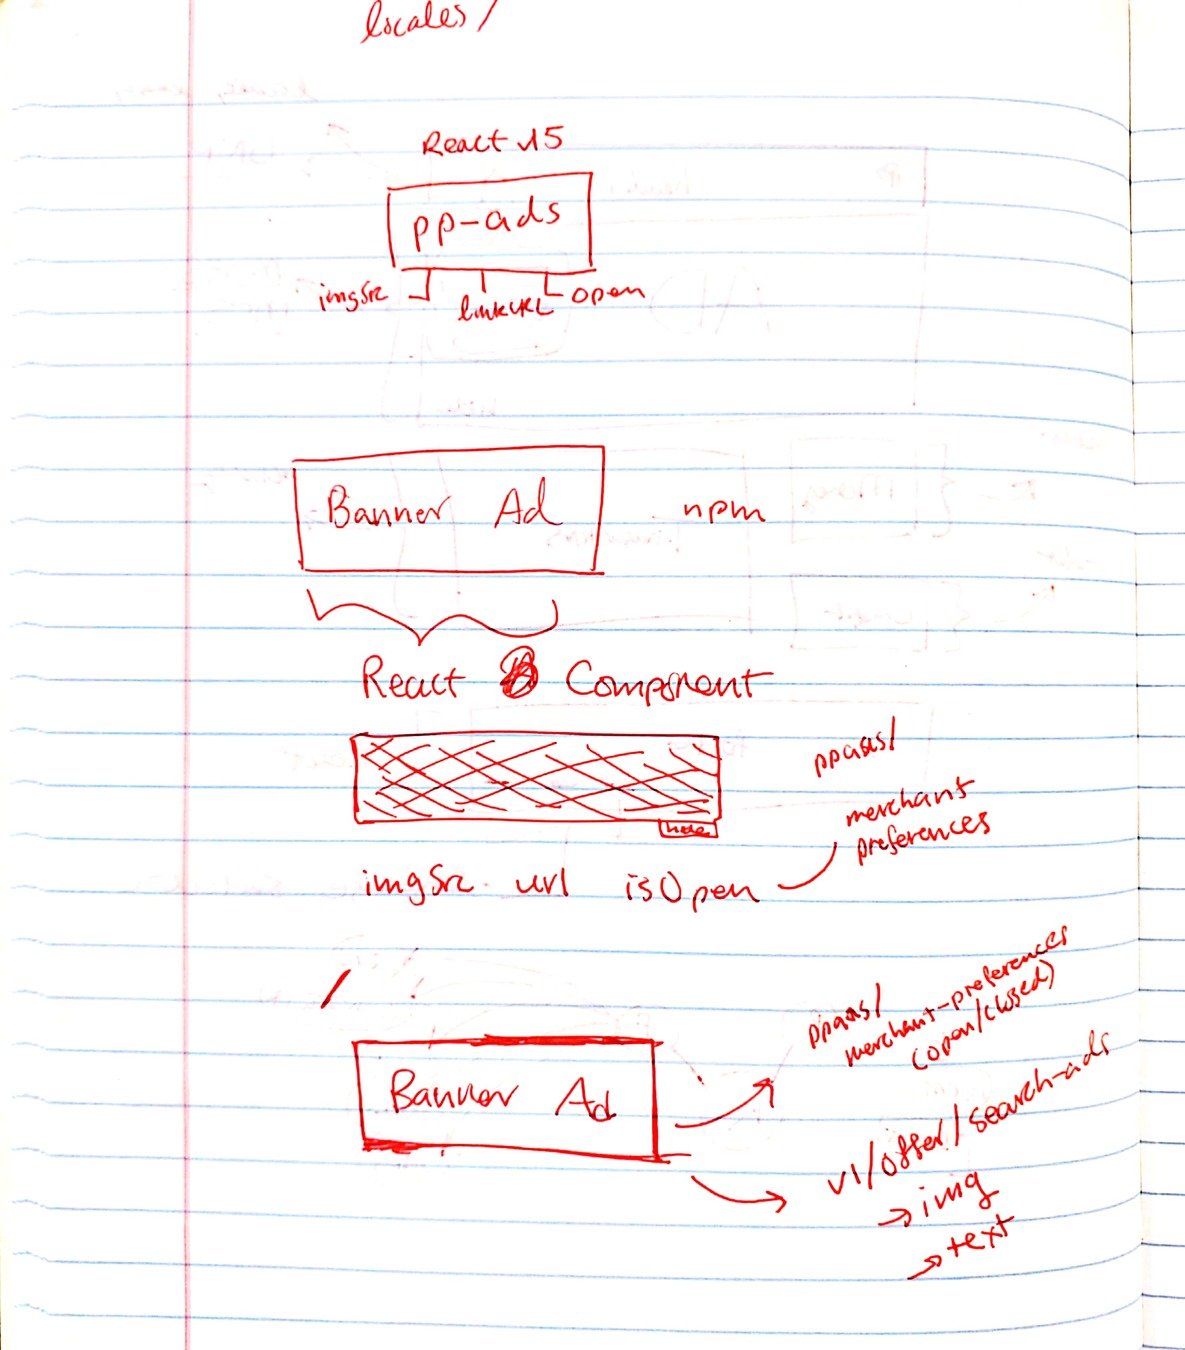 locales/
React v15
pp-ads
imgSrc linkURL open
Banner Ad npm
React Component
hide
ppaas/
merchant
preferences
imgSrc url isOpen
ppaas/
merchant-preferences
(open/closed)
Banner Ad
v1/offer/search-ads
→ img
→ text